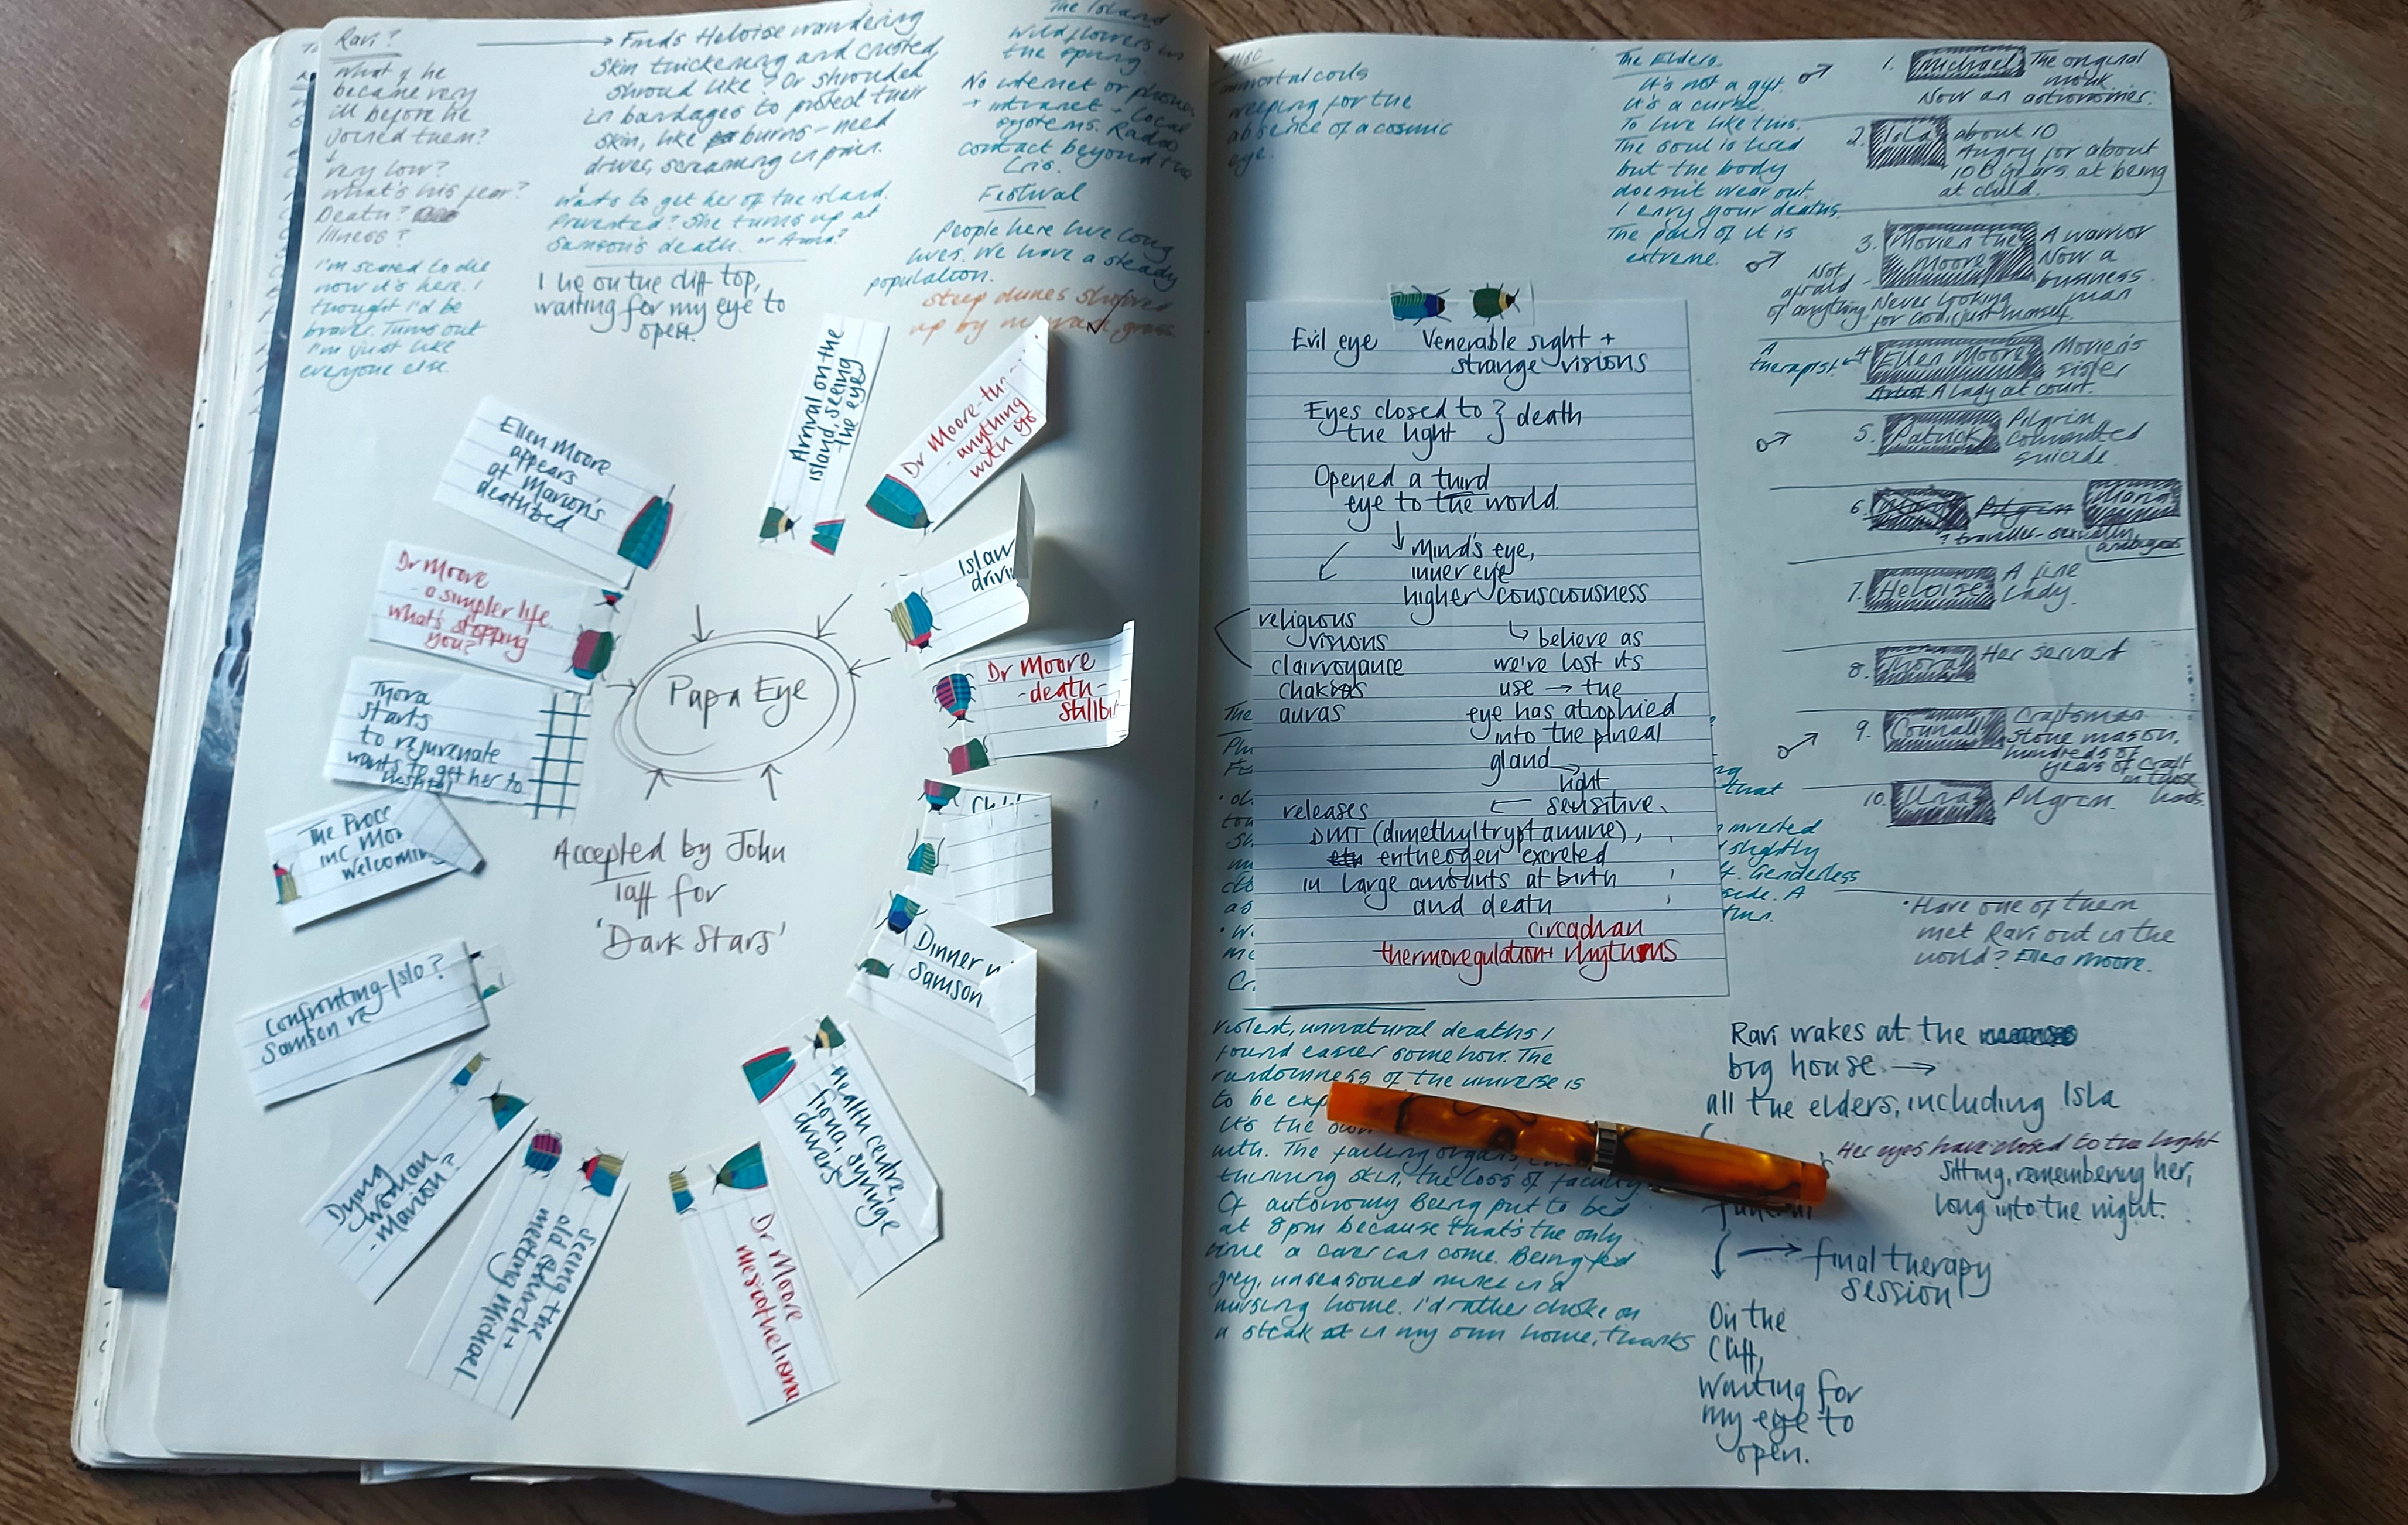 Ravi?
What if he
became very
ill before he
joined them?
very low?
What's his fear?
Death?
Illness?
I'm scared to die
now it's here. I
thought I'd be
braver. Turns out
I'm just like
everyone else.
Finds Heloise wandering
Skin thickening and crusted,
shroud like? Or shrouded
in bandages to protect their
skin, like burns - need
drives, screaming in pain.
Wants to get her off the island.
Prevented? She turns up at
Samson's death. or Anna?
I lie on the cliff top,
waiting for my eye to
open.
The Island
Wildflowers in
the spring
No internet or phones
+ intranet + local
systems. Radio
contact beyond the
Festival
People here live long
lives. We have a steady
population.
steep dunes
up by grass.
Arrival on the
island, seeing
the eye
Dr Moore
- anything
with eye
Island
Dr Moore
- death -
Dinner
Samson
Health centre,
Fiona, syringe
drivers
Dr Moore
mesothelioma
Seeing the
old church +
meeting Michael
Dying
woman
- Marion?
Confronting Isla?
Samson re
The
inc
Welcoming
Thora
starts
to rejuvenate
wants to get her to
hospital
Dr Moore
- a simpler life.
what's stopping
you?
Ellen Moore
appears
at Marion's
deathbed
Papa Eye
Accepted by John
Taff for
'Dark Stars'
Misc
immortal coils
weeping for the
absence of a cosmic
eye.
The Elders
It's not a gift.
It's a curse.
To live like this.
The soul is tired
but the body
doesn't wear out.
I envy your deaths.
The pain of it is
extreme.
1. Michael The original
monk.
Now an astronomer.
2. Isla about 10
Angry for about
100 years at being
a child.
3. Moore A warrior
Now a
business
man
Not
afraid
of anything. Never looking
for God, just himself.
A
therapist 4. Ellen Moore
sister
Artist A lady at court.
5. Patrick Pilgrim
committed
suicide.
6. Pilgrim Maria
7. Heloise A fine
Lady.
8. Thora Her servant
9. Connall Craftsman
Stone mason,
hundreds of
years of craft
in those
hands.
10. Una Pilgrim.
Evil eye Venerable sight +
strange visions
Eyes closed to } death
the light
Opened a third
eye to the world.
Mind's eye,
inner eye
higher consciousness
religious
visions
clairvoyance
chakras
auras
believe as
we've lost its
use → the
eye has atrophied
into the pineal
gland
light
sensitive.
releases
DMT (dimethyltryptamine),
entheogen excreted
in large amounts at birth
and death
circadian
thermoregulation + rhythms
that
inverted
slightly
Genderless
side. A
Have one of them
met Ravi out in the
world? Ellen Moore.
Violent, unnatural deaths I
found easier somehow. The
randomness of the universe is
to be
It's the
with. The failing organs,
thinning skin, the loss of faculty
Of autonomy. Being put to bed
at 8pm because that's the only
time a carer can come. Being fed
grey, unseasoned mince in a
nursing home. I'd rather choke on
a steak in my own home, thanks
Ravi wakes at the
big house →
all the elders, including Isla
Her eyes have closed to the light
Sitting, remembering her,
long into the night.
funeral
final therapy
session
On the
Cliff,
Waiting for
my eye to
open.